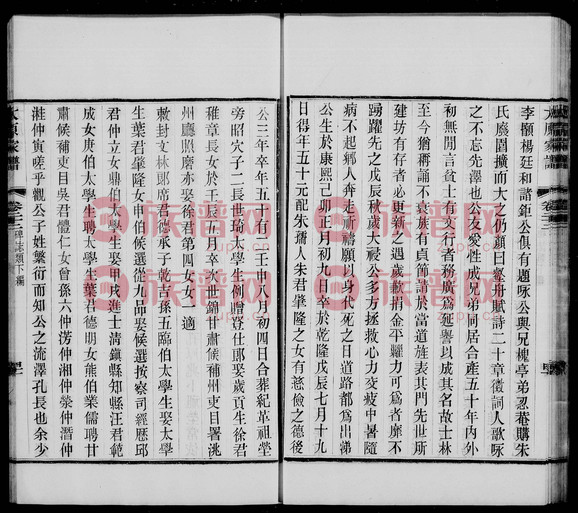 李顒楊廷和諸鉅公俱有題咏公與兄槐亭弟忍菴購朱
氏廢園擴而大之仍顏曰壑舟賦詩二十章徵詞人歌咏
之不忘先澤也公友愛性成兄弟同居合產五十年內外
無閒言貧士有文行者務廣為延譽以成其名故士林
至今猶稱誦不衰族有貞節請於當道旌表其門先世所
建坊有存者必更新之遇歲歉捐金平糶力可為者靡不
踴躍先之戊辰秋歲大祲公多方拯救心力交疲中暑隨
病不起鄉人奔走祈禱願以身代死之日道路都為出涕
公生於康熙己卯正月初九日卒於乾隆戊辰七月十九
日得年五十元配朱孺人朱君肇隆之女有慈儉之德後
公三年卒年五十有二壬申八月初四日合葬紀革祖塋
旁昭穴子二長世琦太學生例贈登仕郎娶歲貢生徐君
稚章長女於壬辰二月卒次世錦甘肅候補州吏目署洮
州廳照磨亦娶徐君第四女女一適
敕封文林郎席君德承子乾吉孫五臨伯太學生娶太學
生葉君肇隆女申伯候選從九品娶候選按察司經歷邱
君仲立女鼎伯太學生娶甲戌進士清鎮縣知縣汪君範
成女庚伯太學生聘太學生葉君德明女熊伯業儒聘甘
肅候補吏目吳君體仁女曾孫六仲澇仲湘仲縈仲溍仲
漄仲寅嗟乎觀公子姓繁衍而知公之流澤孔長也余少
太原家譜
卷二三
碑誌類下編